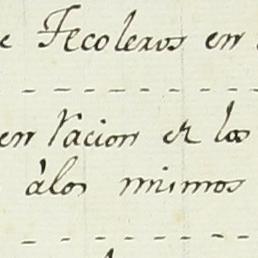 e Tecoleros en
en Vacion en los
álos mimos